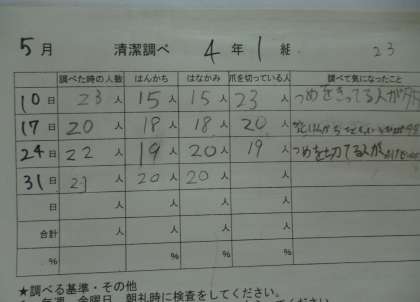 5月 清潔調べ 4年1組 23
調べた時の人数 はんかち はなかみ 爪を切っている人 調べて気になったこと
10日 23人 15人 15人 23人 つめをきってる人が
17日 20人 18人 18人 20人
24日 22人 19人 20人 19人 つめを切てる人が
31日 23人 20人 20人 人
日 人 人 人 人
合計 人 人 人 人
% % % %
★調べる基準・その他
金曜日、朝礼時に検査をしてください。